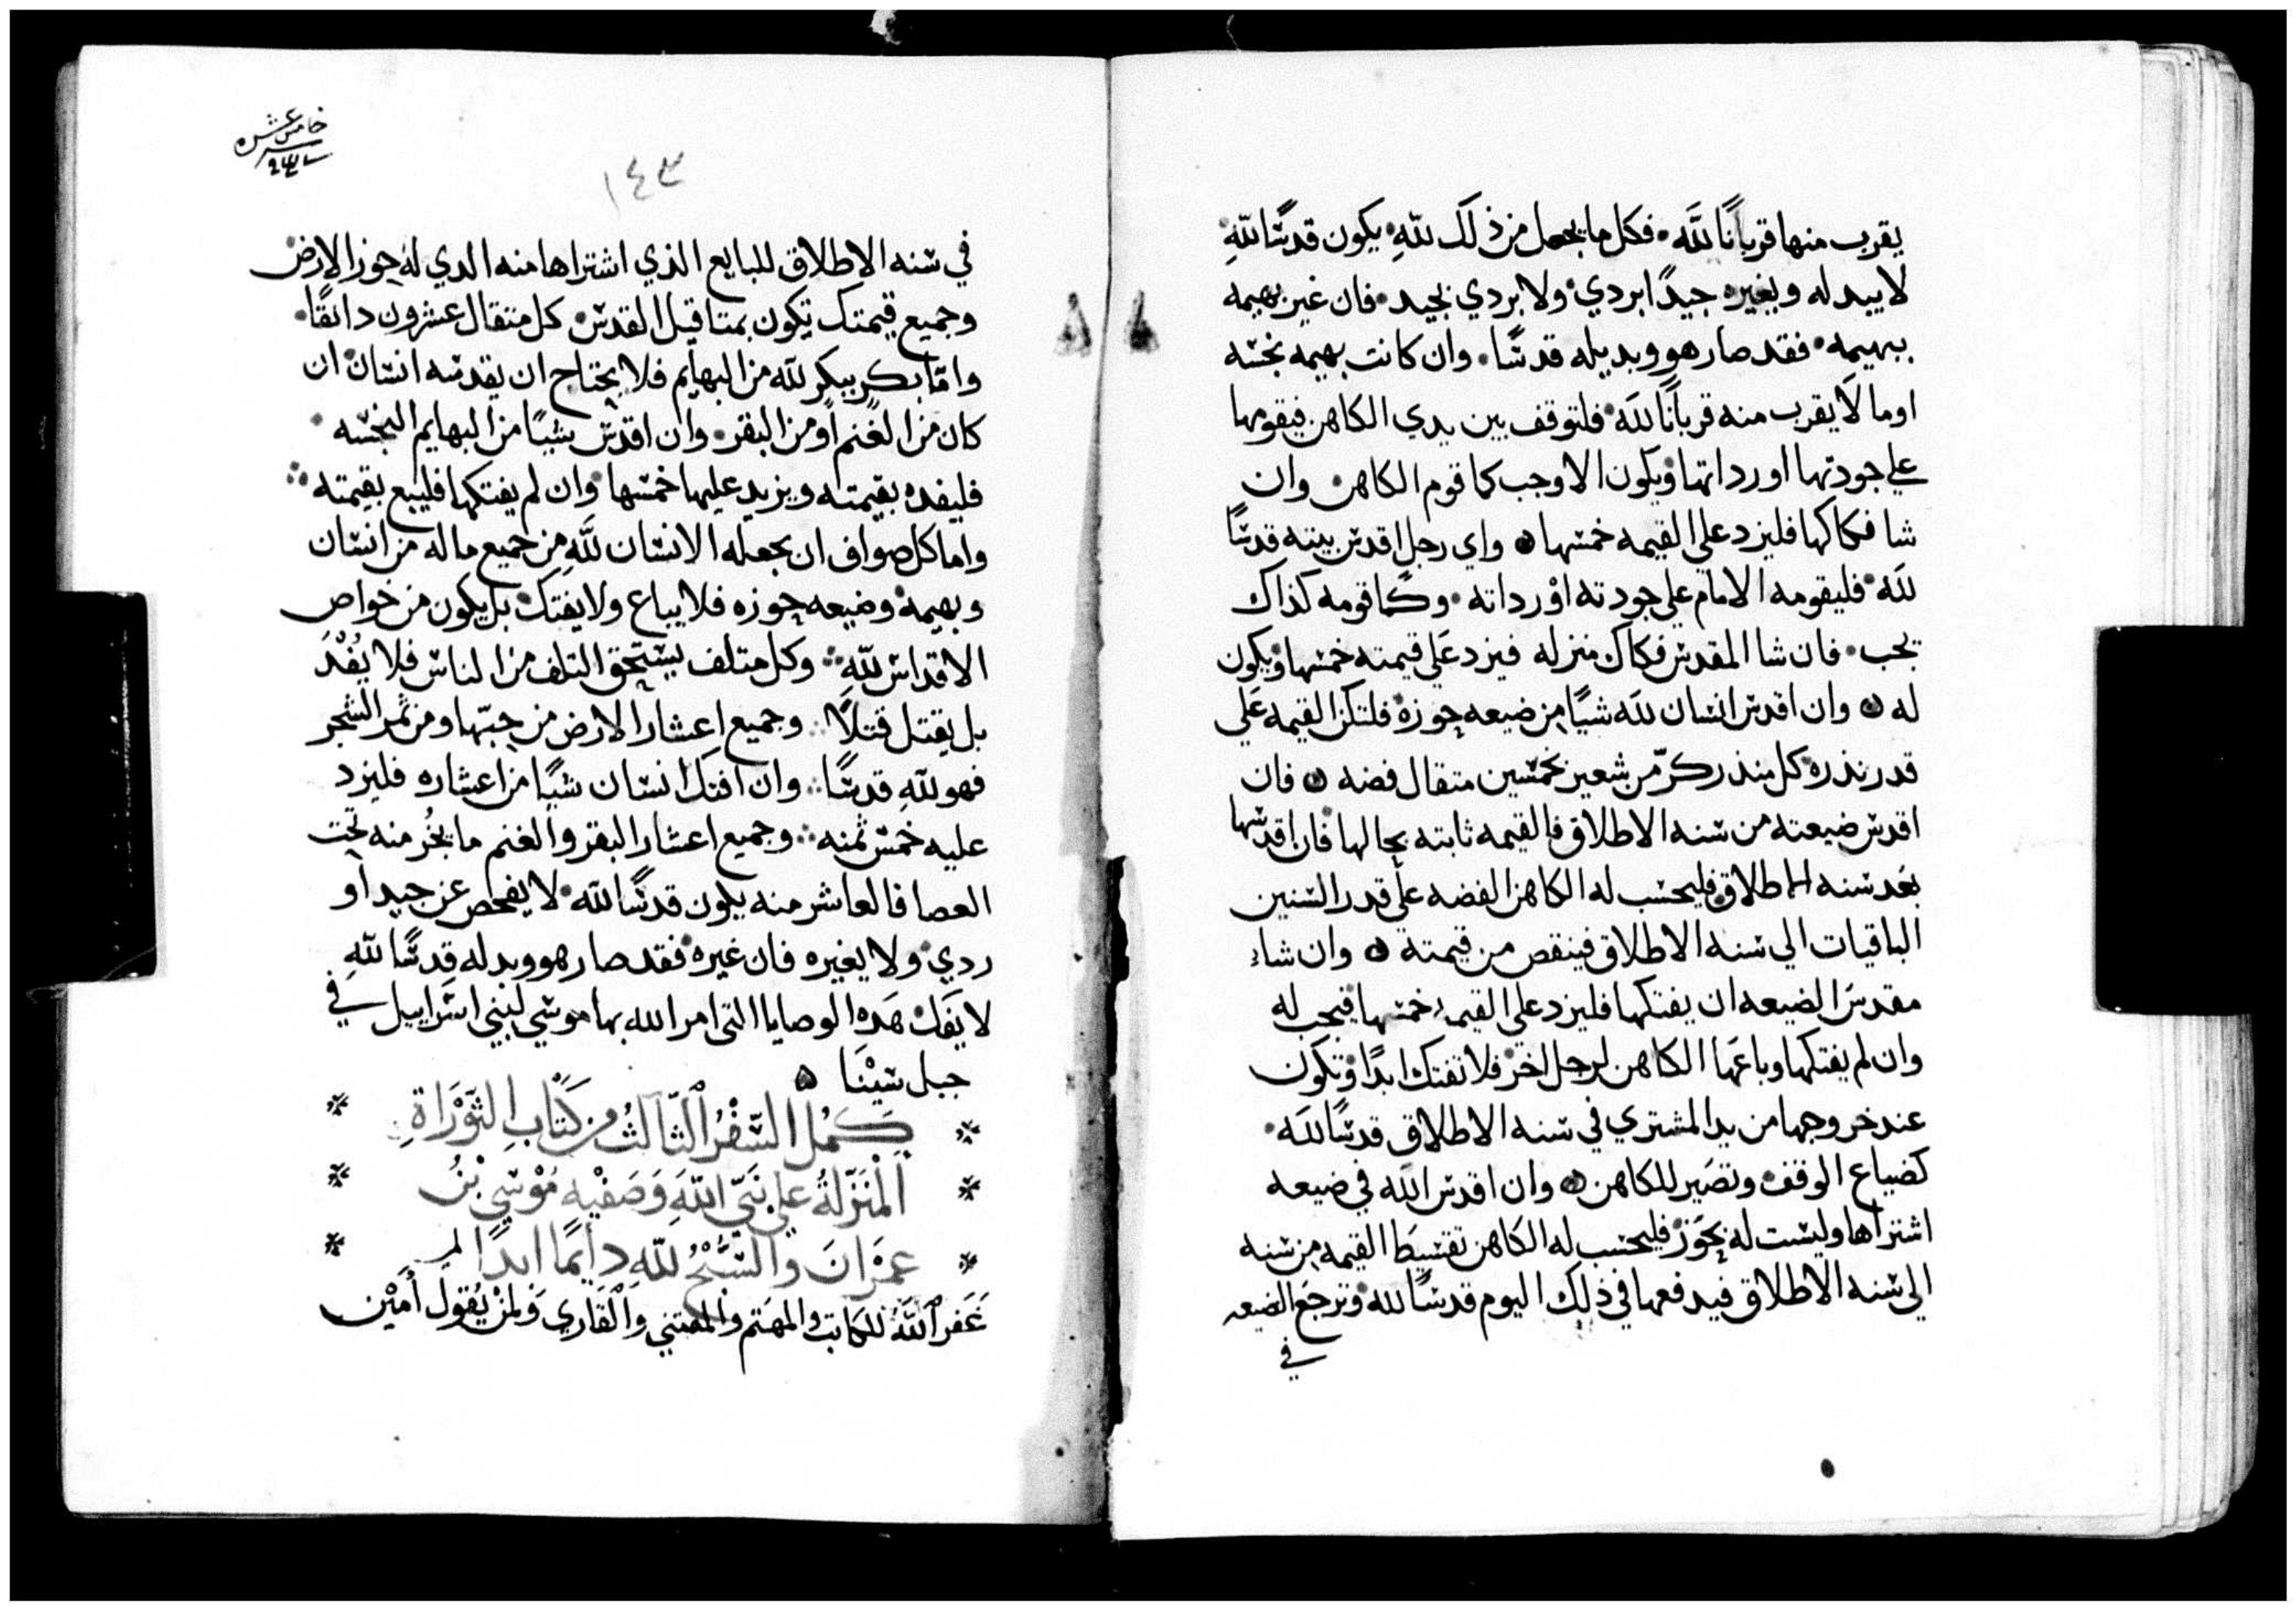 يقرب منها قربانًا للَه فكل ما يجعل من ذلك للهِ يكون قدسًا للهِ
لا يبدله ويغيره جيدًا بردي ولا بردي بجيد فان غير بهيمه
ببهيمه فقد صار هو وبديله قدسًا وان كانت بهيمه نجسه
او ما لَا يقرب منه قربانًا للَه فلتوقف بين يدي الكاهن فيقومها
علي جودتها او رداتها ويكون الاوجب كما قوم الكاهن وان
شا فكاكها فليزد علي القيمه خمسها واي رجل اقدس بيته قدسًا
للَه فليقومه الامام علي جودته اوْ رداته وكما قومه كذاك
يجب فان شا المقدس فكاك منزله فيزد عَلي قيمته خمسها ويكون
له وان اقدس انسان للَه شيًا من ضيعه حوزه فلتكن القيمه عَلي
قدر نذره كل منذر كرّ من شعير بخمسين متقال فضه فان
اقدس ضيعته من سنه الاطلاق فالقيمه ثابته بحالها فان اقدسها
بعَد سنه الاطلاق فليحسب له الكاهن الفضه علي قدر السنين
الباقيات الي سنه الاطلاق فينقص من قيمته وان شاء
مقدس الضيعه ان يفتكها فليزد علي القيمه خمسها فيجب له
وان لم يفتكها وباعَها الكاهن لرجل اخر فلا تفتك ابدًا وتكون
عند خروجها من يد المشتري في سنه الاطلاق قدسًا للَه
كضياع الوقف وتصَير للكاهن وان اقدس اللَه في ضيعه
اشتراها وليست له بحَوز فليحسب له الكَاهن تقسيطَ القيمه من سنه
الي سنه الاطلاق فيدفعها في ذلك اليوم قدسًا لله وترجَع الضيعه
في
خامس عشره
١٤٣
في سنه الاطلاق للبايع الذي اشتراها منه الدي له حوز الارض
وجميع قيمتك تكون بمتاقيل القدس كل متقال عشرون دانقًا
وامّا بكر يبكر للَه من البهايم فلا يحتاج ان يقدسه انسان ان
كان من الغنم او من البقر وان اقدس شيًا من البهايم النجسه
فليفده بقيمته ويزيد عليها خمسها وان لم يفتكها فليبع بقيمته
واما كل صوافٍ ان يجعله الانسان للَّهِ من جميع ما له من انسان
وبهيمه وضيعه حوزه فلا يباع ولا يفتك بل يكون من خواص
الاقداس للهِ وكل متلف يستحق التلف من الناس فلا يُفْدَ
بل يقتل قتلًا وجميع اعشار الارض من حبّها ومن ثمر الشجر
فهو للهِ قدسًا وان افتك انسان شيًا من اعشاره فليزد
عليه خمْس ثمنه وجميع اعشار البقر والغنم ما يجُز منه تحت
العصا فالعاشر منه يكون قدسًا للَه لا يفحص عن جيد او
ردي ولا يغيره فان غيره فقد صار هو وبدله قدسًا للهِ
لا يفَك هَده الوصايا التي امر الله بها موسي لبني اسراييل في
جبل سَيْنَا
كَمُل السّفْرُ الثّالثُ من كَتَابِ التَّوْرَاةِ
الْمنَزّلةُ علي نَبّي اللَّهِ وَصَفْيِه مُوْسَي بْنُ
عِمْرَانَ والسُّبْحُ للّهِ دايمًا ابدًا
غَفر اللَّهُ للكاتب والمهَتم والمقتني والْقَاري وَلمنْ يُقول أَمِيْن